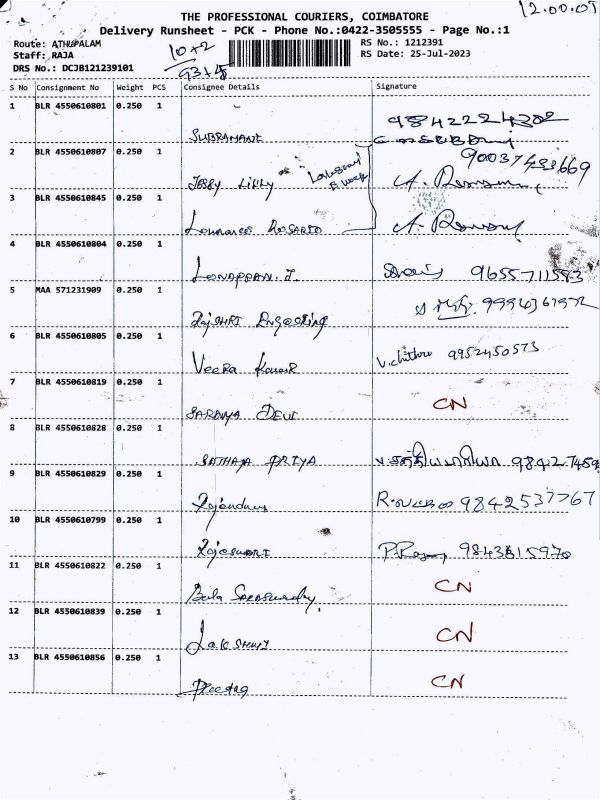 12.00.05
THE PROFESSIONAL COURIERS, COIMBATORE
Delivery Runsheet - PCK - Phone No.:0422-3505555 - Page No.:1
Route: ATHUPALAM 10+2 RS No.: 1212391
Staff: RAJA 93+5 RS Date: 25-Jul-2023
DRS No.: DCJB121239101
S No Consignment No Weight PCS Consignee Details Signature
1 BLR 4550610801 0.250 1
SUBRAMANI
2 BLR 4550610807 0.250 1
JERRY LILLY
3 BLR 4550610845 0.250 1
ROSARIO
4 BLR 4550610804 0.250 1
LONAPPAN.J. 9655711583
5 MAA 571231909 0.250 1
6 BLR 4550610805 0.250 1
VEERA KUMAR V.chithra 9952450573
7 BLR 4550610819 0.250 1
SARANYA DEVI CN
8 BLR 4550610828 0.250 1
SATHYA PRIYA
9 BLR 4550610829 0.250 1
9842537767
10 BLR 4550610799 0.250 1
Rajeswari 9843615970
11 BLR 4550610822 0.250 1
Bala Saraswathy CN
12 BLR 4550610839 0.250 1
LakSHMI CN
13 BLR 4550610856 0.250 1
CN